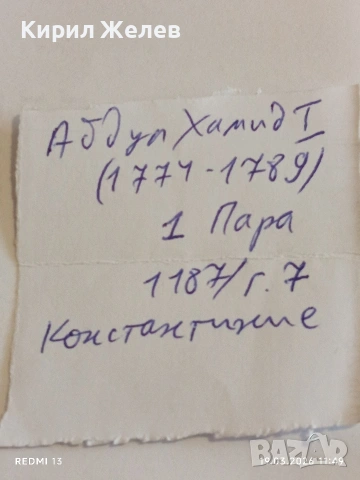 Кирил Желев
Абдул Хамид I
(1774-1789)
1 Пара
1187/г.7
Константиние
REDMI 13
19.03.2026 11:49
BAZAR